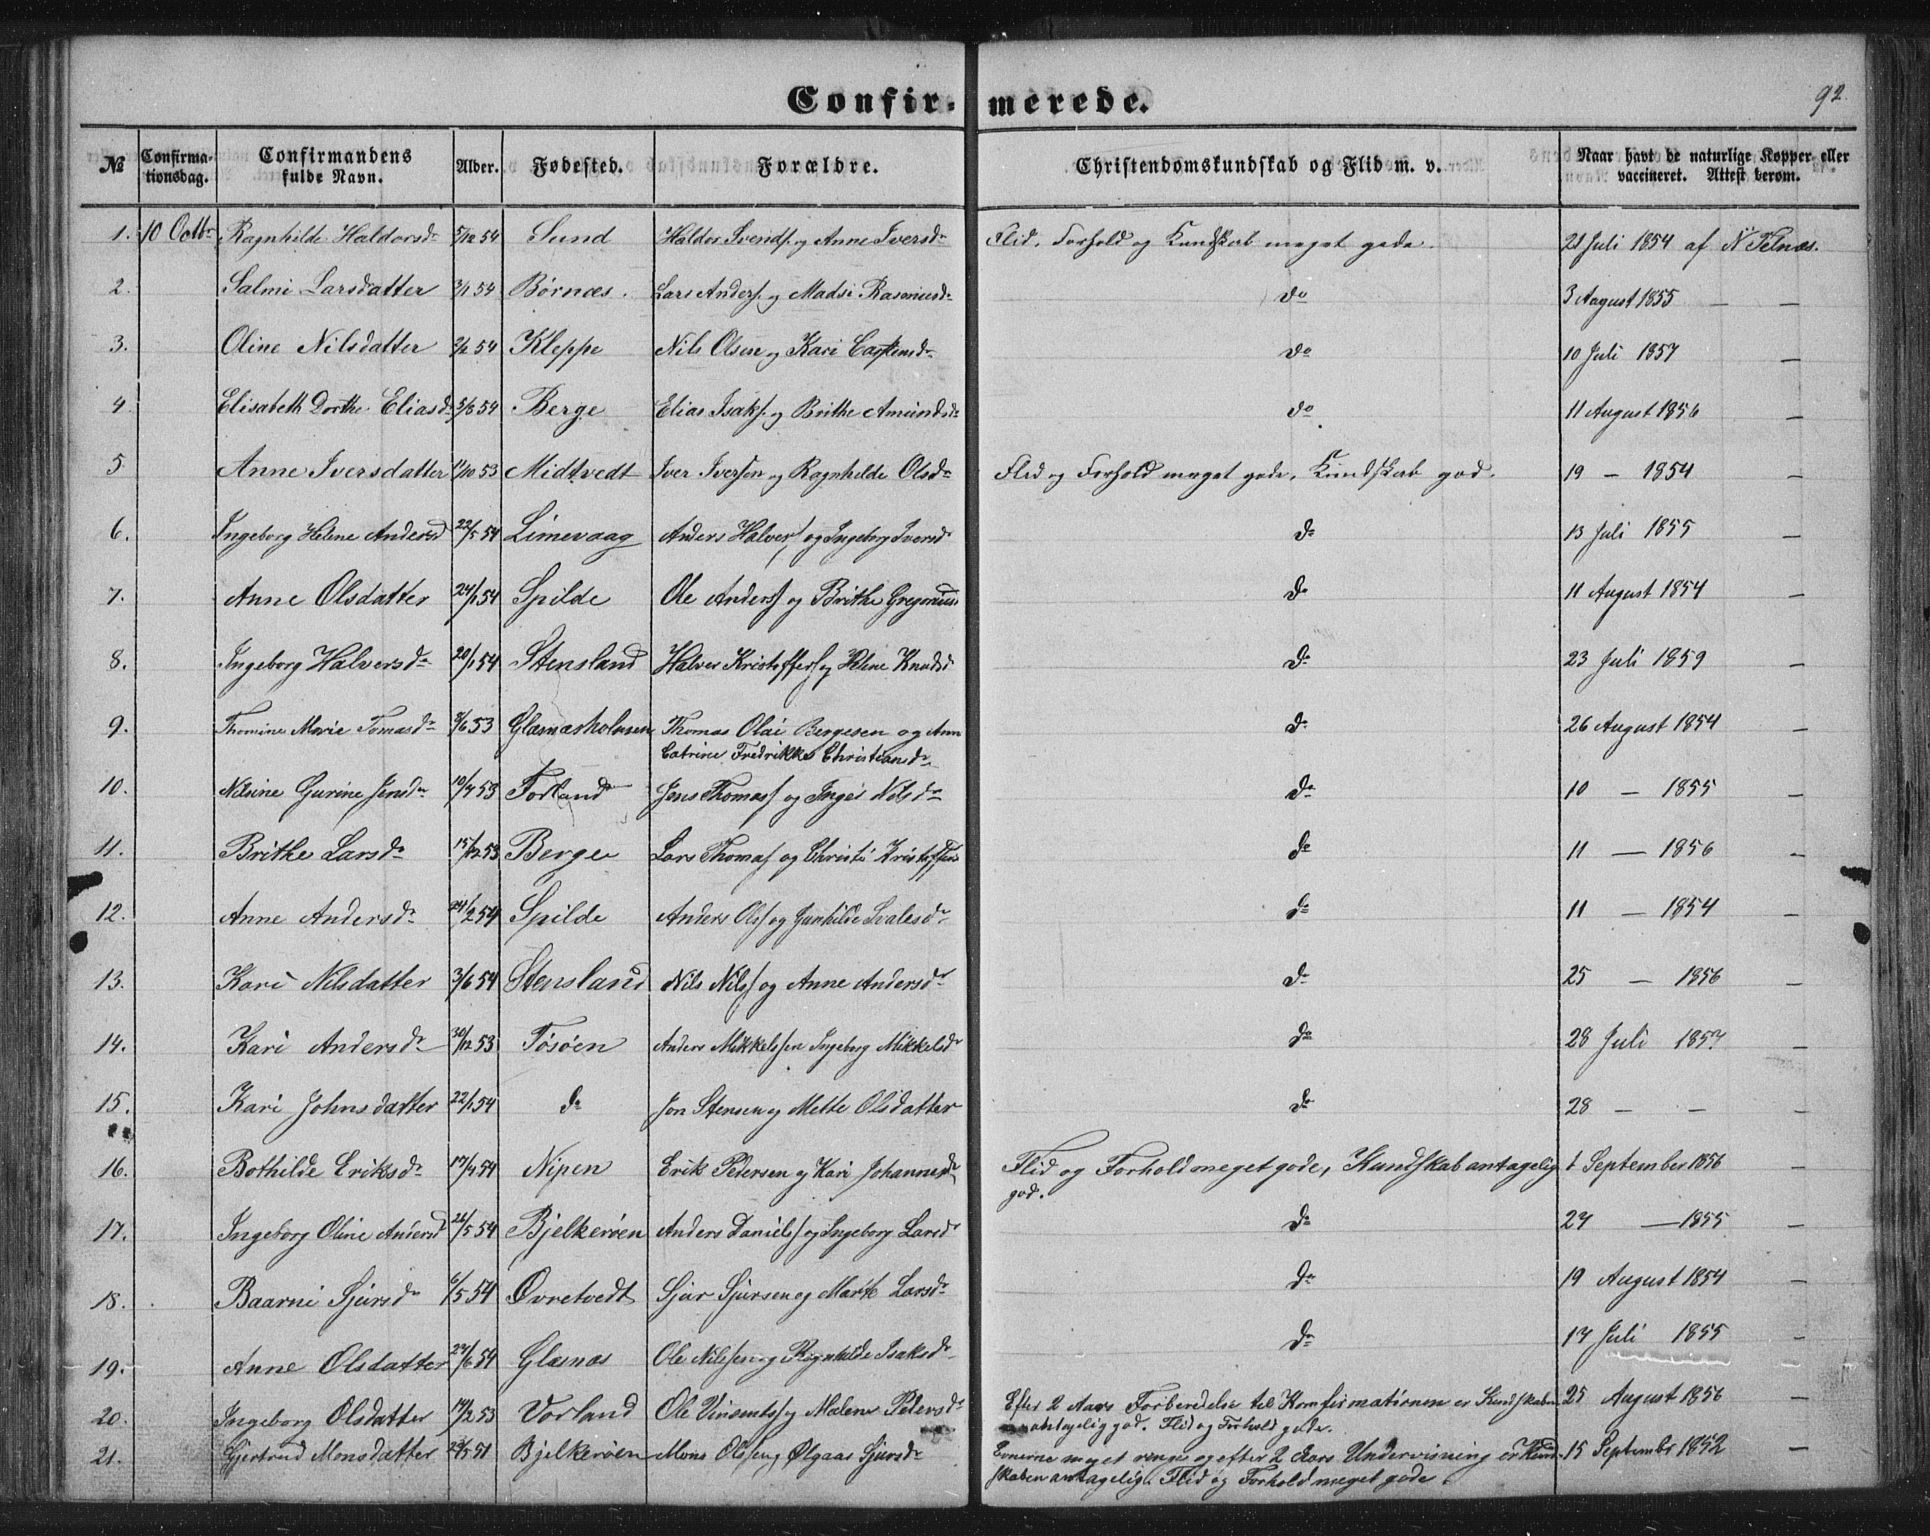 Confir- merede. 92
№ Confirma-tionsdag. Confirmandens fulde Navn. Alder. Fødested. Forældre. Christendomskundskab og Flid m. v. Naar havt de naturlige Kopper eller vaccineret. Attest derom.
1. 10 Octbr Ragnhilde Haldorsdr 5/12 54 Sund Haldor Svends. og Anne Iversdr Flid, Forhold og Kundskab meget gode. 21 Juli 1854 af N Telnæs.
2. Salmi Larsdatter 3/1 54 Børnæs. Lars Anders. og Madsi Rasmusdr do 3 August 1855 — —
3. Oline Nilsdatter 2/2 54 Kleppe Nils Olsen og Kari Carstensdr do 10 Juli 1857 —
4 Elisabeth Dorthe Eliasdr 3/3 54 Berge Elias Isaks. og Brithe Amundsdr do 11 August 1856 —
5 Anne Iversdatter 11/10 53 Midtvedt Iver Iversen og Ragnhilde Olsdr Flid og Forhold meget gode, Kundskab god. 19 — 1854 —
6. Ingeborg Helene Andersd 22/5 54 Limevaag Anders Halvers og Ingeborg Iversdr do 13 Juli 1855 —
7. Anne Olsdatter 24/1 54 Spilde Ole Anders og Brithe Gregorius do 11 August 1854 —
8. Ingeborg Halversdr 20/1 54 Stensland Halver Kristoffers og Helene Knudsd do 23 Juli 1859 —
9. Thomine Marie Tomasdr 8/6 53 Glæsnæsholmen Thomas Olai Bergesen og Ann do 26 August 1854
Catrine Fredrikke Christiansdr
10. Nilsine Gurine Jensdr 10/4 53 Forland Jens Thomas og Inger Nilsdr do 10 — 1855 —
11. Brithe Larsdr 15/12 53 Berge Lars Thomas og Christi Kristoffers do 11 — 1856 —
12. Anne Andersdr 24/2 54 Spilde Anders Ols og Gunhilde Svalesdr do 11 — 1854 —
13. Kari Nilsdatter 3/6 54 Stensland Nils Nils og Anne Andersdr do 25 — 1856 —
14. Kari Andersdr 30/12 53 Tøsøen Anders Mikkelssen Ingeborg Mikkelsdr do 28 Juli 1857 —
15. Kari Johnsdatter 22/1 54 do Jon Stensen og Mette Olsdatter do 28 — —
16. Bothilde Eriksdr 17/4 54 Nipen Erik Pedersen og Kari Johannesdr Flid og Forhold meget gode, Kundskab antagelig 1 September 1856 —
god.
17. Ingeborg Oline Andersd 21/5 54 Bjelkerøen Anders Daniels og Ingeborg Larsdr do 27 — 1855 —
18. Baarni Sjursdr 6/5 54 Øvretvedt Sjur Sjursen og Marte Larsdr do 19 August 1854 —
19. Anne Olsdatter 27/6 54 Glæsnæs Ole Nilssen og Ragnhilde Isaksdr do 17 Juli 1855 —
20. Ingeborg Olsdatter 14/2 53 Vorland Ole Vinsents og Malene Pedersdr Efter 2 Aars Forberedelse til Komfirmationen er Kundskaben 25 August 1856 —
antagelig god. Flid og Forhold gode.
21. Gjertrud Monsdatter 29/5 51 Bjelkerøen Mons Olsen og Ølgaas Sjursdr Evnerne meget ringe og efter 2 Aars Undervisning er Kund- 15 Septembr 1852 —
skaben antagelig. Flid og Forhold meget gode.